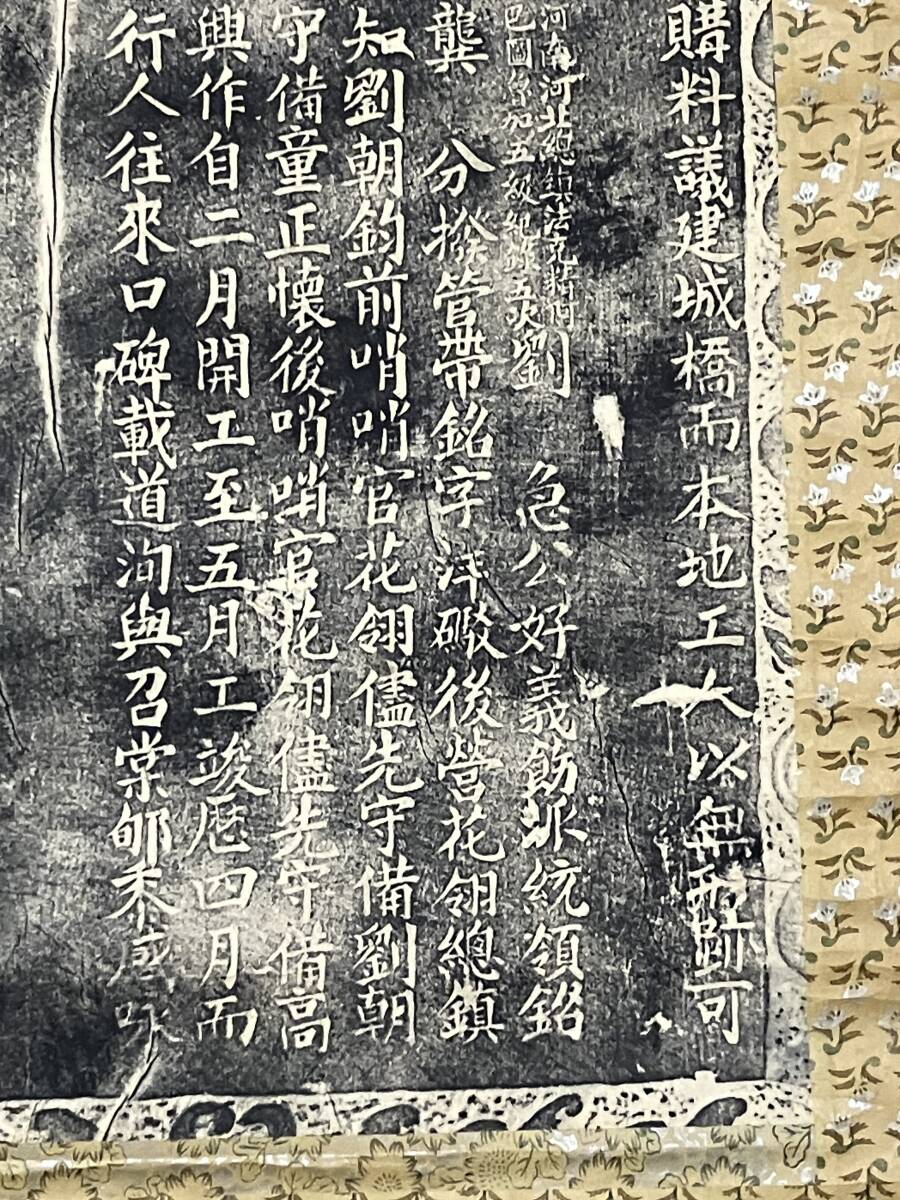 購料議建城橋而本地工人以無形跡可
河南河北總鎮法克精阿
巴圖魯加五級紀錄五次劉 急公好義飭派統領銘
龔 分撥管帶銘字洋礮後營花翎總鎮
知劉朝鈞前哨哨官花翎儘先守備劉朝
守備童正懷後哨哨官花翎儘先守備高
興作自二月開工至五月工竣歷四月而
行人往來口碑載道洵與召棠郇黍